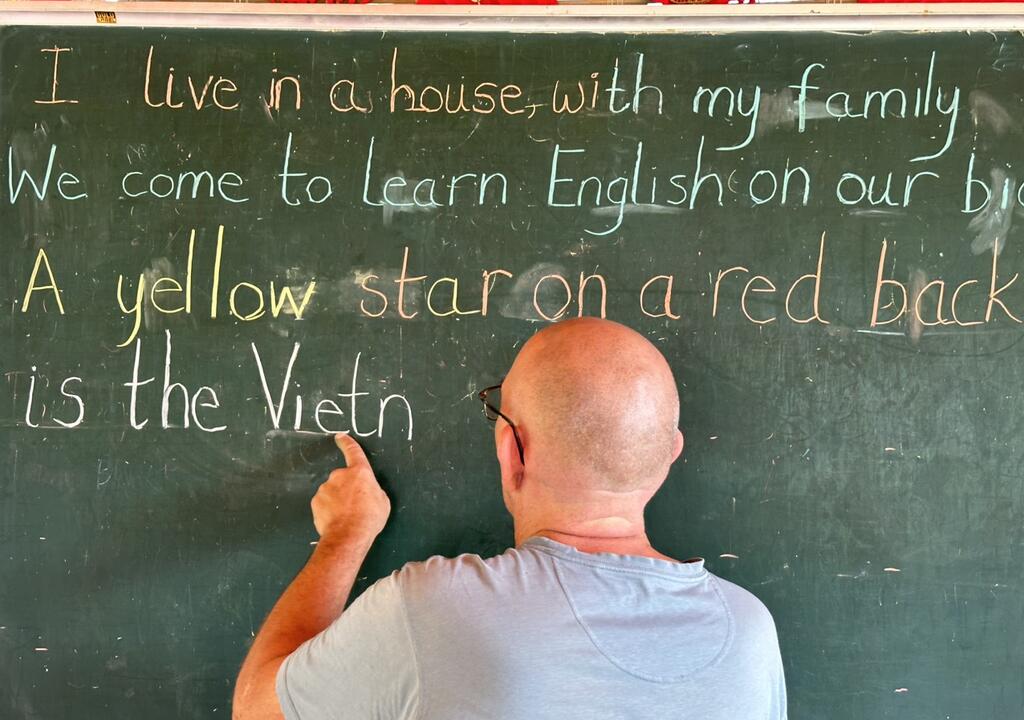 I live in a house, with my family
We come to learn English on our
A yellow star on a red back
is the Vietn